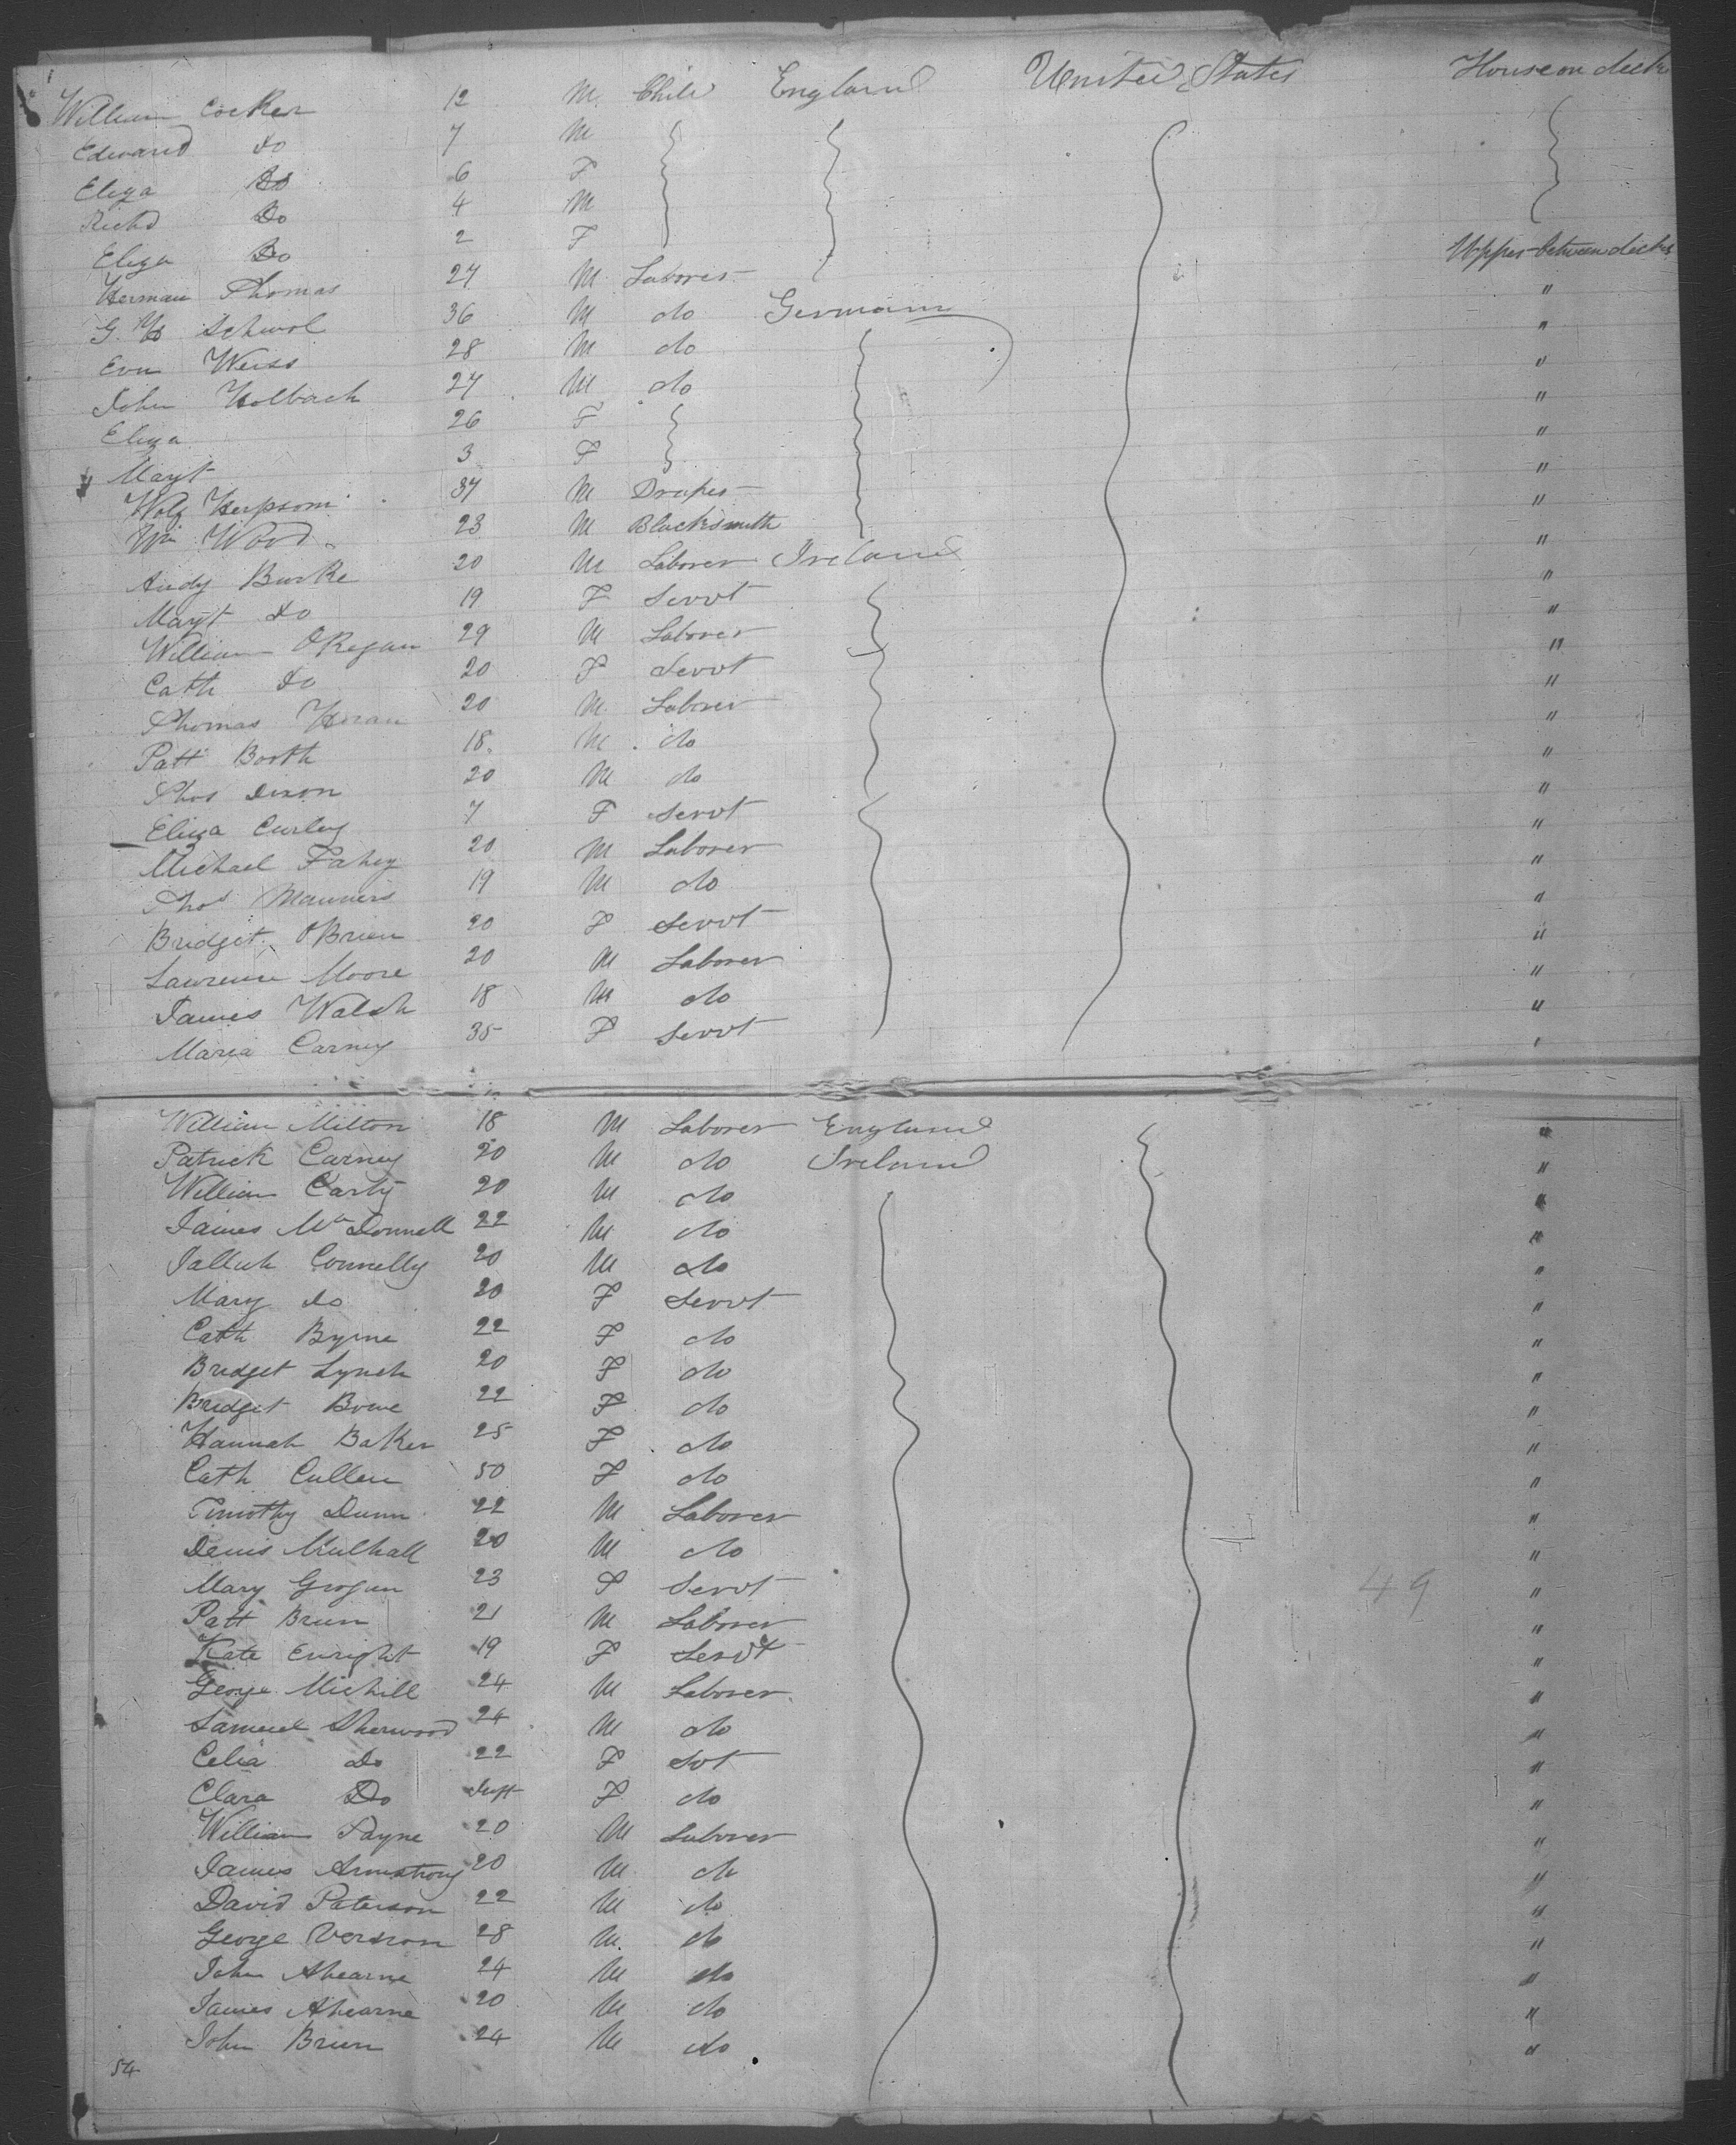 William Cocker 12 M. Child England United States House on deck
Edward do 7 M
Eliza Do 6 F
Richd Do 4 M
Eliza Do 2 F
Herman Thomas 27 M Laborer Upper between decks
G. H School 36 M do Germany "
Eva Weiss 28 M do "
John Holbach 27 M do "
Eliza 26 F "
Magt 3 F "
Wolf 37 M Draper "
Wm Wood 23 M Blacksmith "
Andy Burke 20 M Laborer Ireland "
Magt do 19 F Servt "
William O'Regan 29 M Laborer "
Cath do 20 F Servt "
Thomas Horan 20 M Laborer "
Patt Booth 18 M do "
Thos Dixon 20 M do "
Eliza Curley 7 F Servt "
Michael Fahey 20 M Laborer "
Thos Manners 19 M do "
Bridget O'Brien 20 F Servt "
Lawrence Moore 20 M Laborer "
James Walsh 18 M do "
Maria Carney 35 F Servt "
William Milton 18 M Laborer England "
Patrick Carney 20 M do Ireland "
William Carty 20 M do "
James McDonnell 22 M do "
Connelly 20 M do "
Mary do 20 F Servt "
Cath Byrne 22 F do "
Bridget Lynch 20 F do "
Bridget Bowe 22 F do "
Hannah Baker 25 F do "
Cath Cullen 50 F do "
Timothy Dunn 22 M Laborer "
Denis Mulhall 20 M do "
Mary Grogan 23 F Servt 49 "
Patt Brien 21 M Laborer "
Kate Enright 19 F Servt "
George Michill 24 M Laborer "
Samuel Sherwood 24 M do "
Celia Do 22 F Svt "
Clara Do Inft F do "
William Payne 20 M Laborer "
James Armstrong 20 M do "
David Paterson 22 M do "
George Vernon 28 M. do "
John Ahearne 24 M do "
James Ahearne 20 M do "
John Brien 24 M do "
54